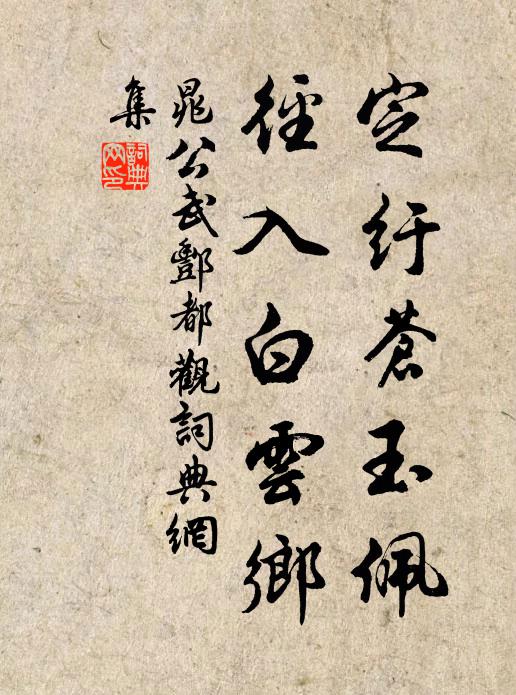 定紆蒼玉佩
徑入白雲鄉
晁公武酆都觀詞典網
集
詞典網印